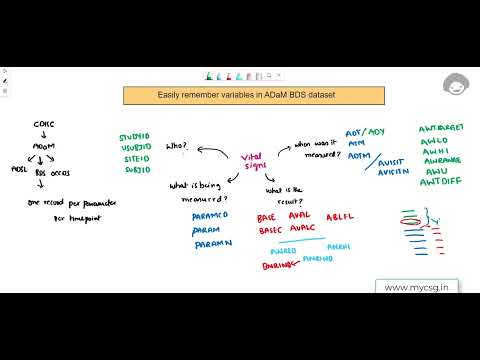 Easily remember variables in ADaM BDS dataset
CDISC
ADaM
ADSL BDS OCCDS
one record per parameter
per timepoint
STUDYID
USUBJID
SITEID
SUBJID
Who?
Vital
signs
what is being
measured?
PARAMCD
PARAM
PARAMN
what is the
result?
BASE AVAL ABLFL
BASEC AVALC
ANRLO ANRHI
ANRIND
BNRIND
when was it
measured?
ADT/ADY
ATM
ADTM
AVISIT
AVISITN
AWTARGET
AWLO
AWHI
AWRANGE
AWU
AWTDIFF
www.mycsg.in